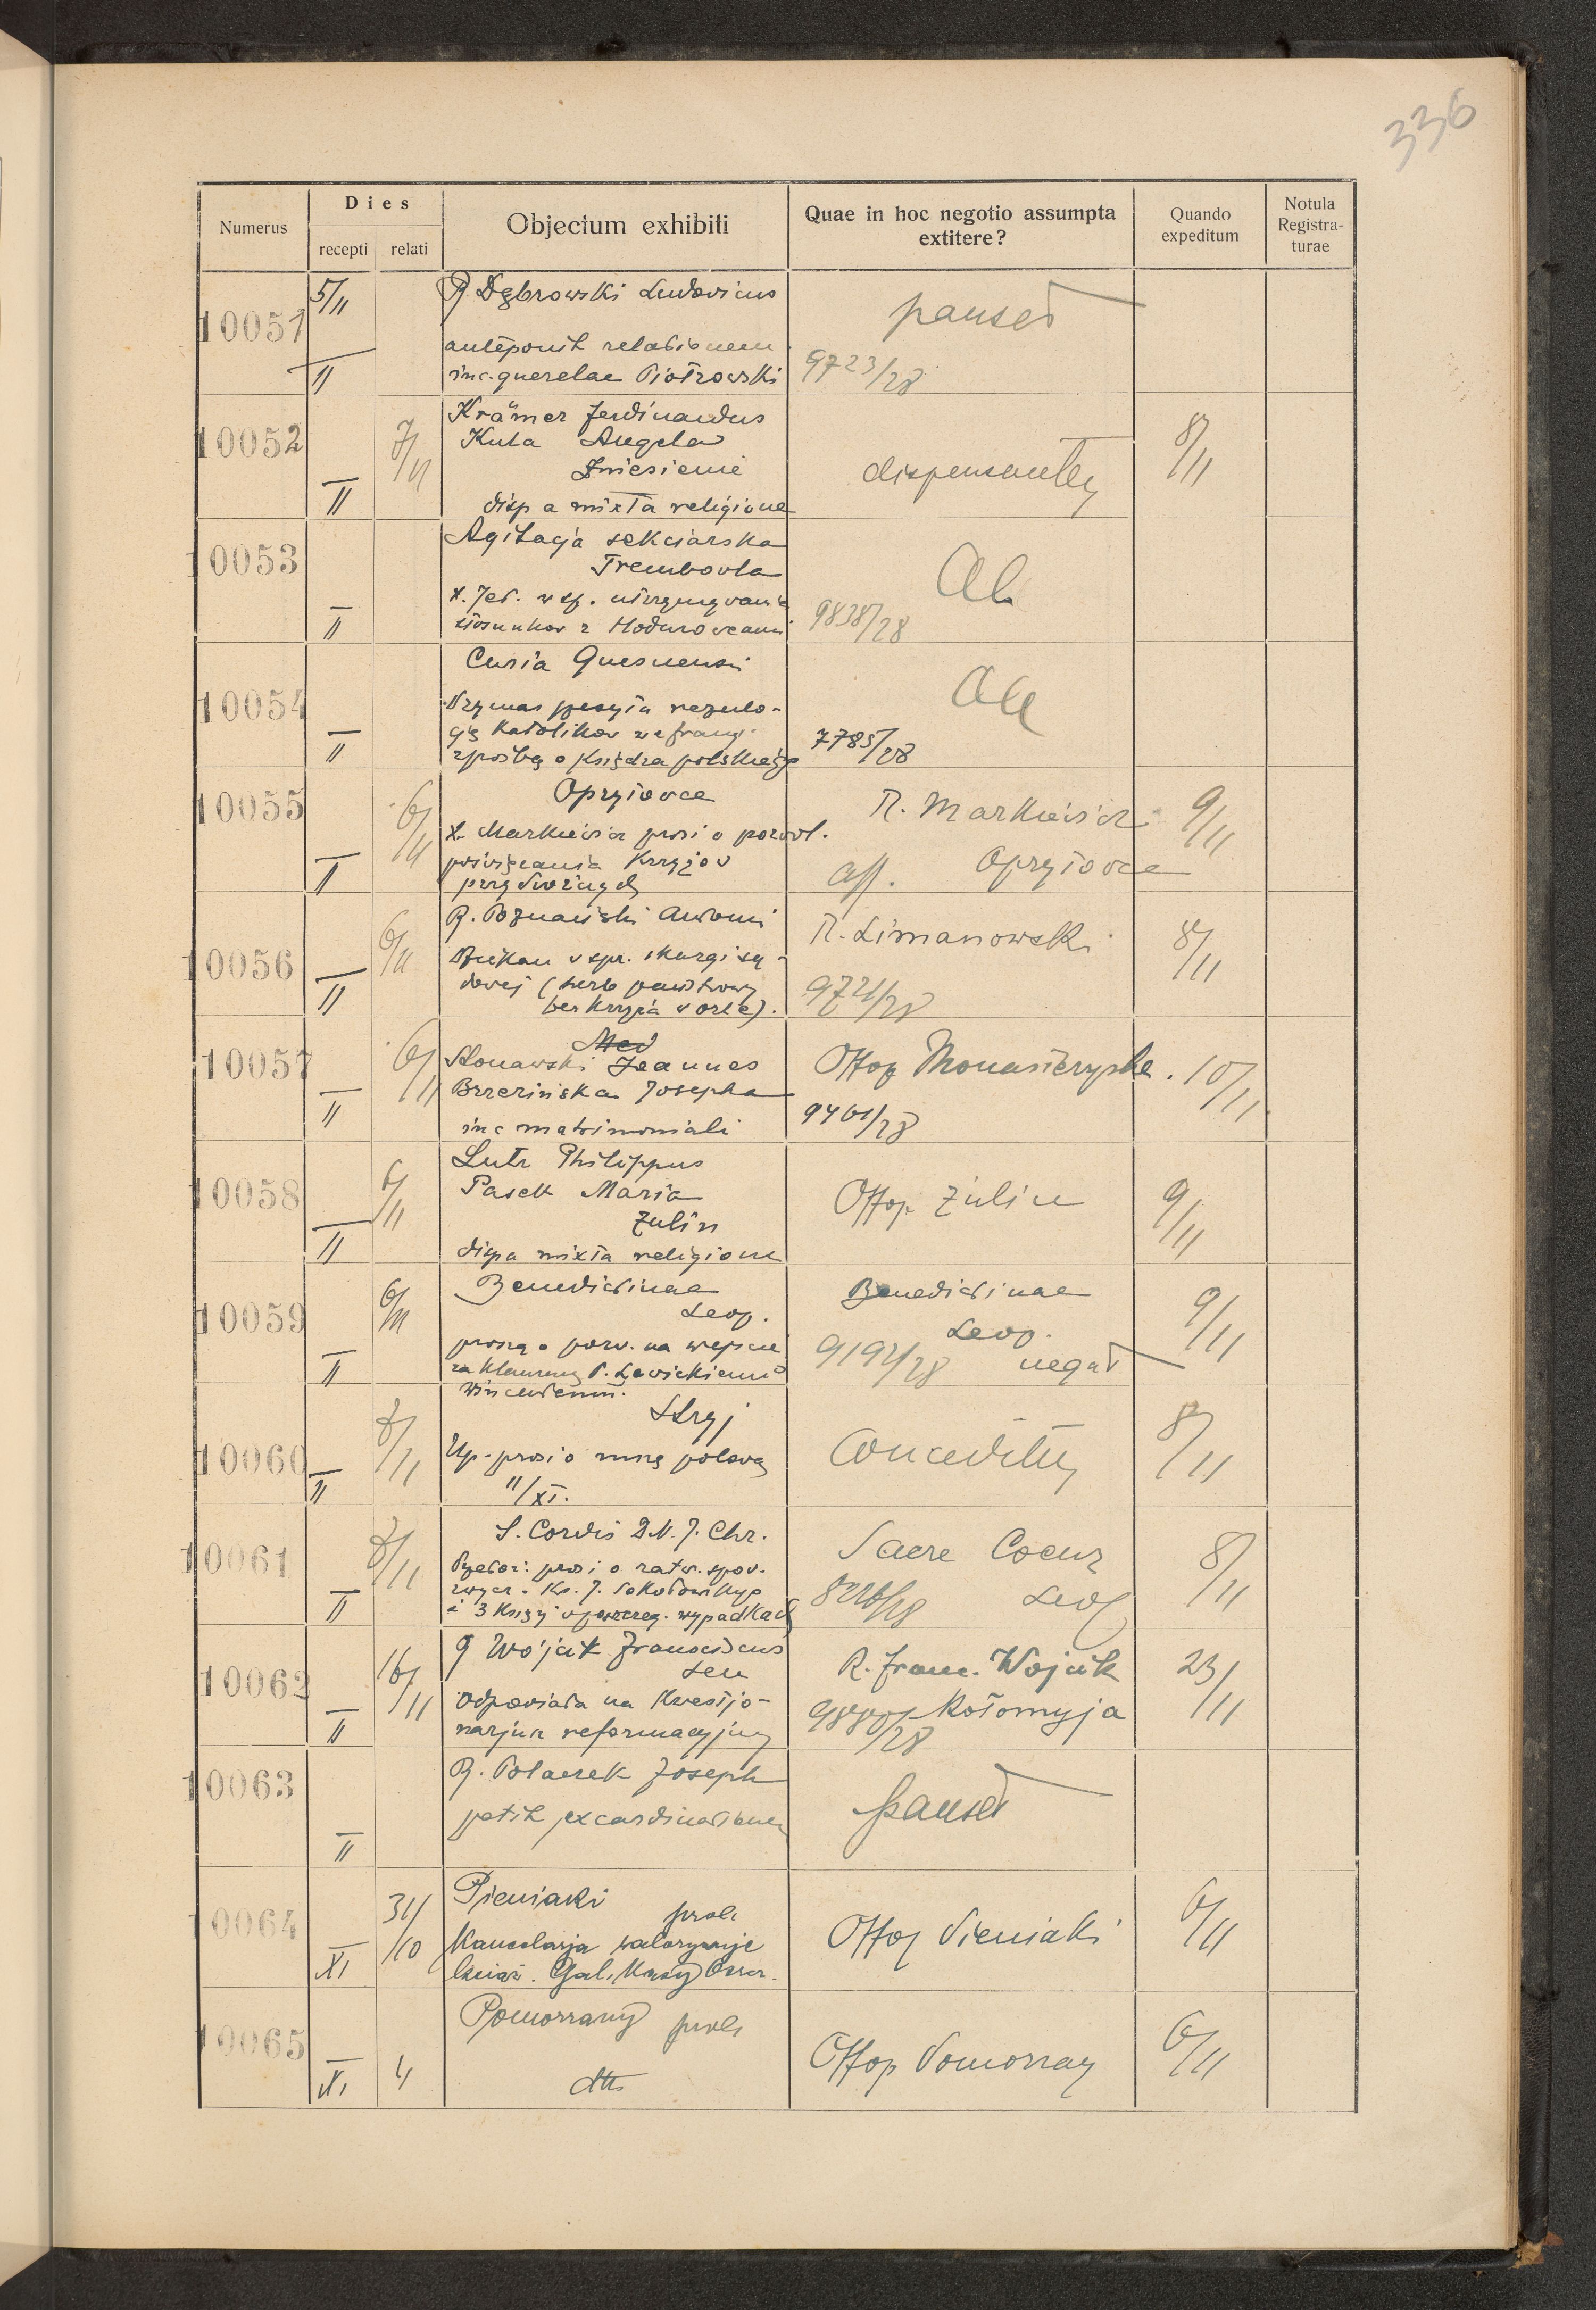 336
Numerus
Dies
recepti
relati
Objectum exhibiti
Quae in hoc negotio assumpta
extitere?
Quando
expeditum
Notula
Registra-
turae
10051
5/11
R. Dąbrowski Ludovicus
anteponit relationem
inc. querelae Piotrowski
pauset
9723/28
10052
7/11
Krämer Ferdinandus
Kula Angela
Zniesienie
disp a mixta religione
dispensantur
8/11
10053
Agitacja sekciarska
Trembowla
stosunkov z Hodurovcami
9838/28
10054
Curia Gnesnensi
Prymas
Katolikov
z prośbą o księdza polskiego
7785/28
10055
6/11
Opryłovce
x. Markiewicz prosi o pozwol.
poświęcania Krzyżov
przydrożnych
R. Markiewicz
aff. Opryłovce
9/11
10056
6/11
R. Poznański Antoni
Buikau v spr. skargi są-
dovej (herb państwowy
bez krzyża v orle).
R. Limanowski
8/11
10057
6/11
Słonawski Joannes
Brzezińska Josepha
inc matrimoniali
Offop Monasterzyska.
9461/28
10/11
10058
6/11
Lutz Philippus
Pasek Maria
Żulin
disp a mixta religione
Offop Żulin
9/11
10059
6/11
Benedictinae
Leop.
proszą o pozw. na wejście
za klauzurę P. Levickiemu
Wincentemu.
Benedictinae
Leop.
9192/28 negat
9/11
10060
7/11
Stryj
Up. prosi o mszę polową
11/XI.
Conceditur
8/11
10061
7/11
S. Cordis D.N.J. Chr.
Przełoż. prosi o zatw. spov.
zwycz. Ks. J. Sokołowskiego
i 3 księży v poszczeg. wypadkach
Sacre Coeur
Leop
8/11
10062
16/11
R Wójcik Franciscus
Len
Odpoviada na Kvestjo-
narjusz reformacyjny
R. Franc. Wojcik
Kołomyja
23/11
10063
R. Polaczek Joseph
petit excardinationem
pauset
10064
XI
31/10
Pieniaki prob.
Kancelarja waloryzuje
książ. Gal. Kasy Oszcz.
Offop Pieniaki
6/11
10065
XI
4
Pomorzany prob.
dtto
Offop Pomorzany
6/11